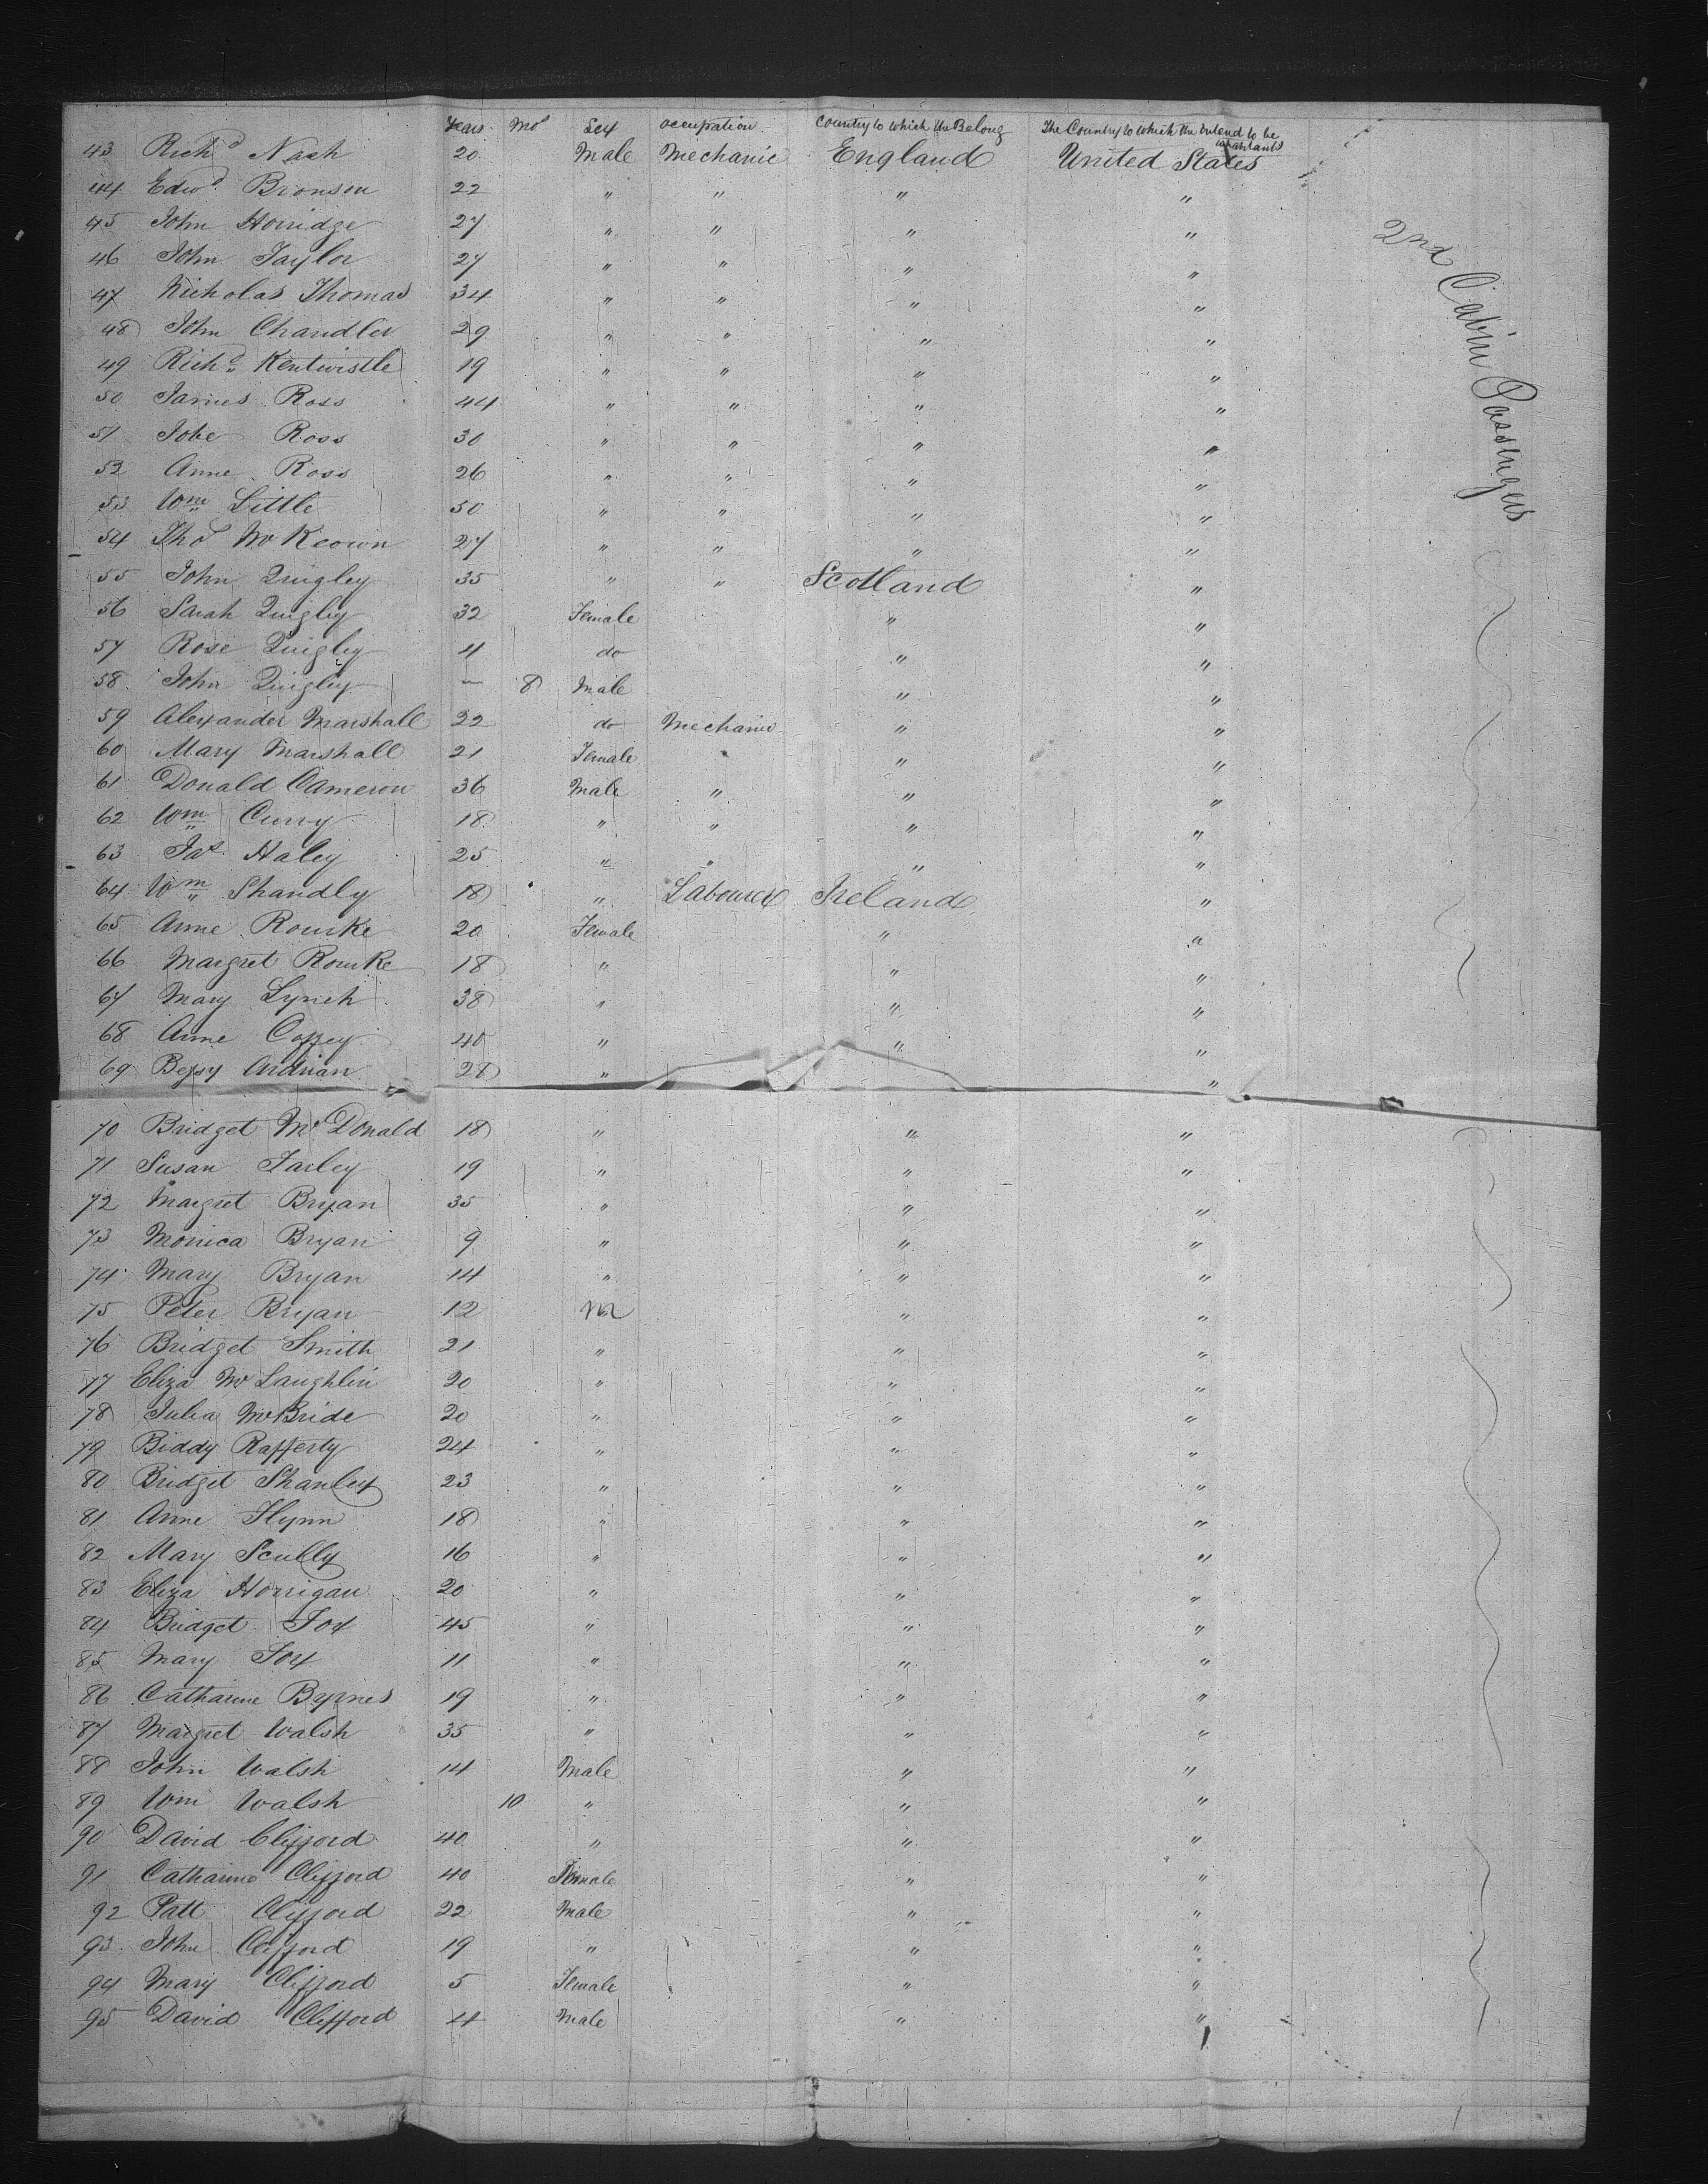 Years Mos Sex occupation Country to which the Belong The Country to which the intend to be inhabitants
43 Richd Nash 20 Male Mechanic England United States
44 Edwd Bronson 22 " " " "
45 John Horridge 27 " " " "
46 John Taylor 27 " " " "
47 Nicholas Thomas 34 " " " "
48 John Chandler 29 " " " "
49 Richd Kentwistle 19 " " " "
50 James Ross 44 " " " "
51 Jobe Ross 30 " " " "
52 Anne Ross 26 " " " "
53 Wm Little 50 " " " "
54 Thos McKeown 27 " " " "
55 John Quigley 35 " " Scotland "
56 Sarah Quigley 32 Female " "
57 Rose Quigley 4 do " "
58 John Quigley — 8 Male " "
59 Alexander Marshall 22 do Mechanic " "
60 Mary Marshall 21 Female " "
61 Donald Cameron 36 Male " " "
62 Wm Curry 18 " " " "
63 Jas Haley 25 " " " "
64 Wm Shandly 18 " Labourer Ireland "
65 Anne Rourke 20 Female " "
66 Margret Rourke 18 " " "
67 Mary Lynch 38 " " "
68 Anne Coffey 40 " " "
69 Bessy Ardrian 28 " "
70 Bridget McDonald 18 " " "
71 Susan Farley 19 " " "
72 Margret Bryan 35 " " "
73 Monica Bryan 9 " " "
74 Mary Bryan 14 " " "
75 Peter Bryan 12 M " "
76 Bridget Smith 21 " " "
77 Eliza McLaughlin 20 " " "
78 Julia McBride 20 " " "
79 Biddy Rafferty 24 " " "
80 Bridget Shanley 23 " " "
81 Anne Flynn 18 " " "
82 Mary Scully 16 " " "
83 Eliza Horrigan 20 " " "
84 Bridget Fox 45 " " "
85 Mary Fox 11 " " "
86 Catharine Byrnes 19 " " "
87 Margret Walsh 35 " " "
88 John Walsh 14 Male " "
89 Wm Walsh 10 " " "
90 David Clifford 40 " " "
91 Catharine Clifford 40 Female " "
92 Patt Clifford 22 Male " "
93 John Clifford 19 " " "
94 Mary Clifford 5 Female " "
95 David Clifford 4 Male " "
2nd Cabin Passengers